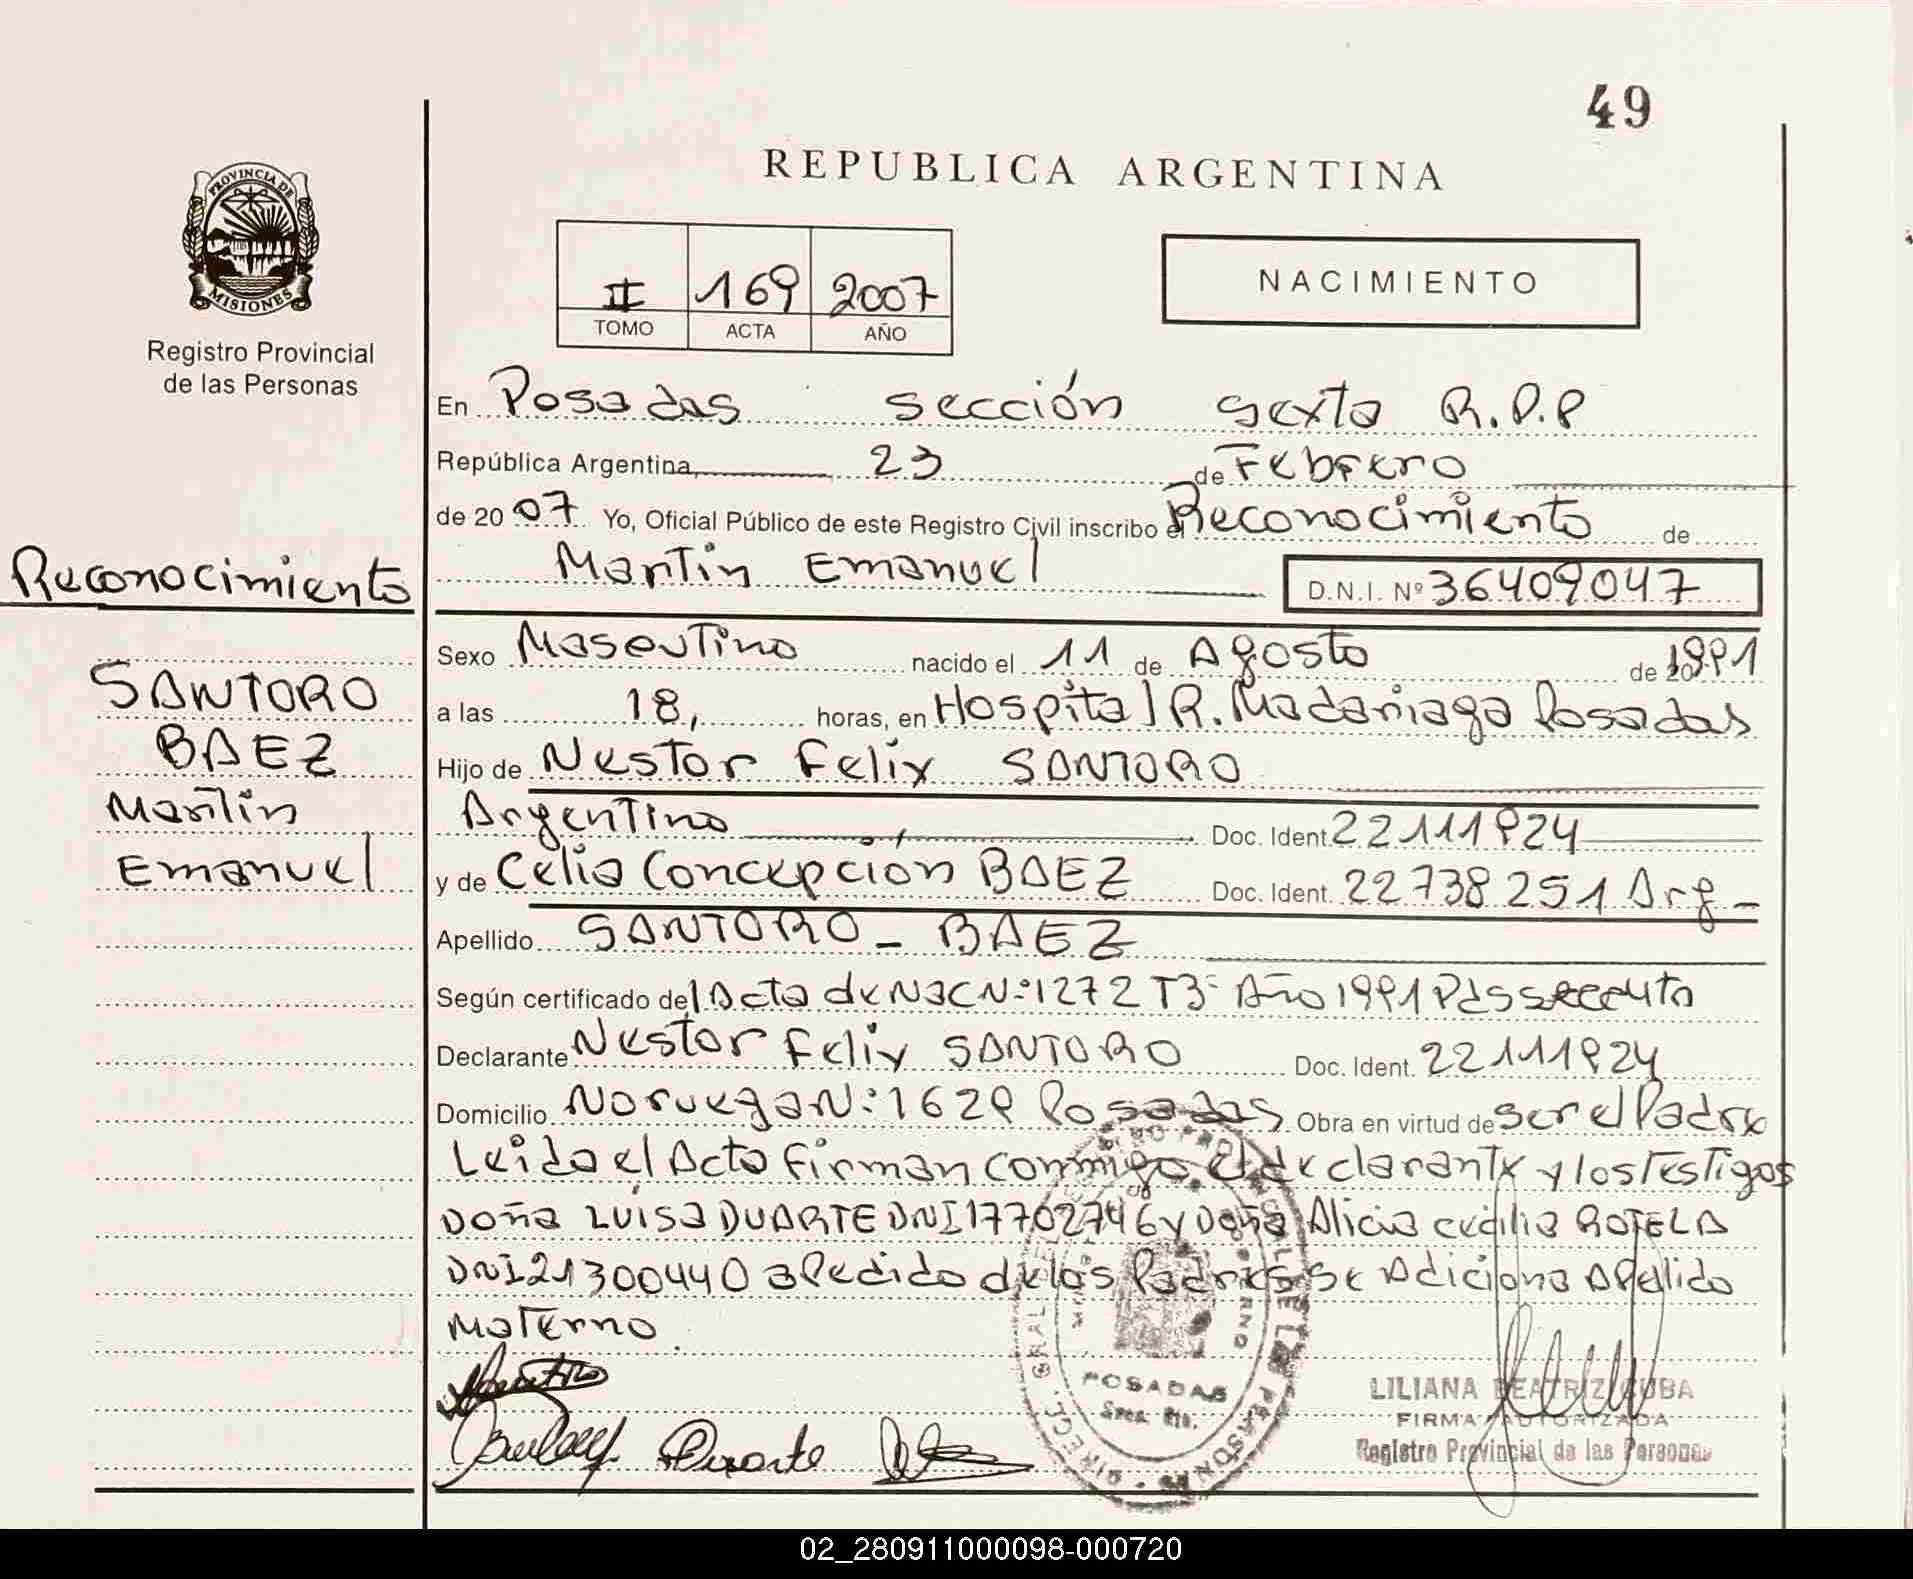 49
PROVINCIA DE
MISIONES
Registro Provincial
de las Personas
REPUBLICA ARGENTINA
II 169 2007
TOMO ACTA AÑO
NACIMIENTO
En Posadas sección sexta R.P.P
República Argentina, 23 de Febrero
de 2007 Yo, Oficial Público de este Registro Civil inscribo el Reconocimiento de
Martin Emanuel D.N.I. Nº 36409047
Reconocimiento
SANTORO
BAEZ
Martin
Emanuel
Sexo Masculino nacido el 11 de Agosto de 1991
a las 18, horas, en Hospital R. Madariaga Posadas
Hijo de Nestor Felix SANTORO
Argentino Doc. Ident. 22111924
y de Celia Concepción BAEZ Doc. Ident. 22738251 Arg -
Apellido SANTORO - BAEZ
Según certificado del Acta de Nac Nº: 1272 T3º Año 1991
Declarante Nestor Felix SANTORO Doc. Ident. 22111924
Domicilio Noruega N:º 1629 Posadas Obra en virtud de ser el Padre
Leida el Acta firman conmigo el declarante y los Testigos
Doña LUISA DUARTE DNI 17702746 y Doña Alicia cecilia ROTELA
DNI 21300440 a Pedido de los Padres se Adiciona Apellido
Materno.
Duarte
POSADAS
LILIANA BEATRIZ CUBA
FIRMA AUTORIZADA
Registro Provincial de las Personas
02_280911000098-000720